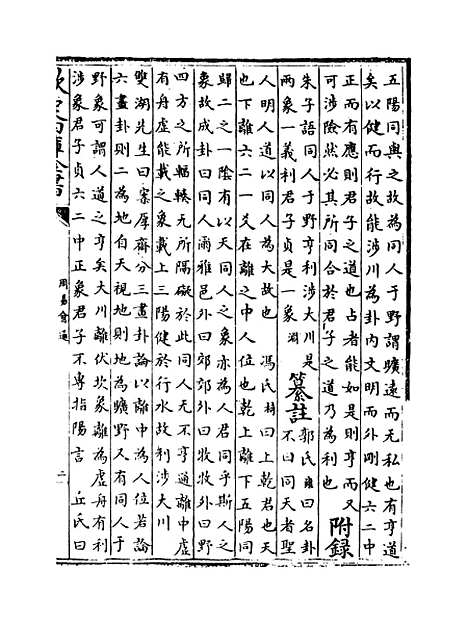 五陽同與之故為同人于野謂曠遠而无私也有亨道
矣以健而行故能涉川為卦內文明而外剛健六二中
正而有應則君子之道也占者能如是則亨而又
可涉險然必其所同合於君子之道乃為利也 附録
朱子語同人于野亨利涉大川是
兩象一義利君子貞是一象淵 纂註 郭氏雍曰名卦
不曰同天者聖
人明人道以同人為大故也 馮氏椅曰上乾君也天
也下離六二一爻在離之中人位也乾上離下五陽同
歸二之一陰有以天同人之象亦為人君同乎斯人之
象故成卦曰同人爾雅邑外曰郊郊外曰牧牧外曰野
四方之所輻輳无所隔礙於此同人无不亨通離中虚
有舟虚能載之象載上三陽健於行水故利涉大川
雙湖先生曰案厚齋分三畫卦論以離中為人位若論
六畫卦則二為地自天視地則地為曠野又有同人于
野象可謂人道之亨矣大川離伏坎象離為虚舟有利
涉象君子貞六二中正象君子不專指陽言 丘氏曰
欽定四庫全書
周易會通
二